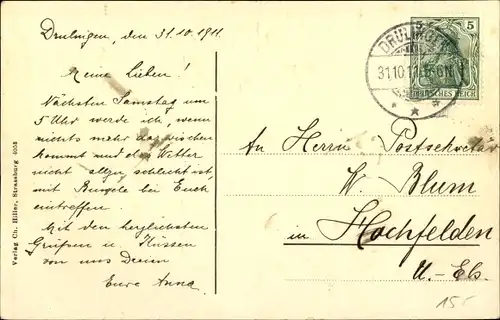 Drulingen, den 31.10.1911.
Meine Lieben!
Nächsten Samstag um
5 Uhr werde ich, wenn
nichts mehr dazwischen
kommt und das Wetter
nicht allzu schlecht ist,
mit bei Euch
eintreffen.
Mit den herzlichsten
Grüßen u. Küssen
von uns Dreien
Eure Anna
Verlag Ch. Hiller, Strassburg 4053
5
DRULINGEN
31.10.11.5-6N
DEUTSCHES REICH
An Herrn Postsekretär
W. Blum
in Hochfelden
U.-Els.
15